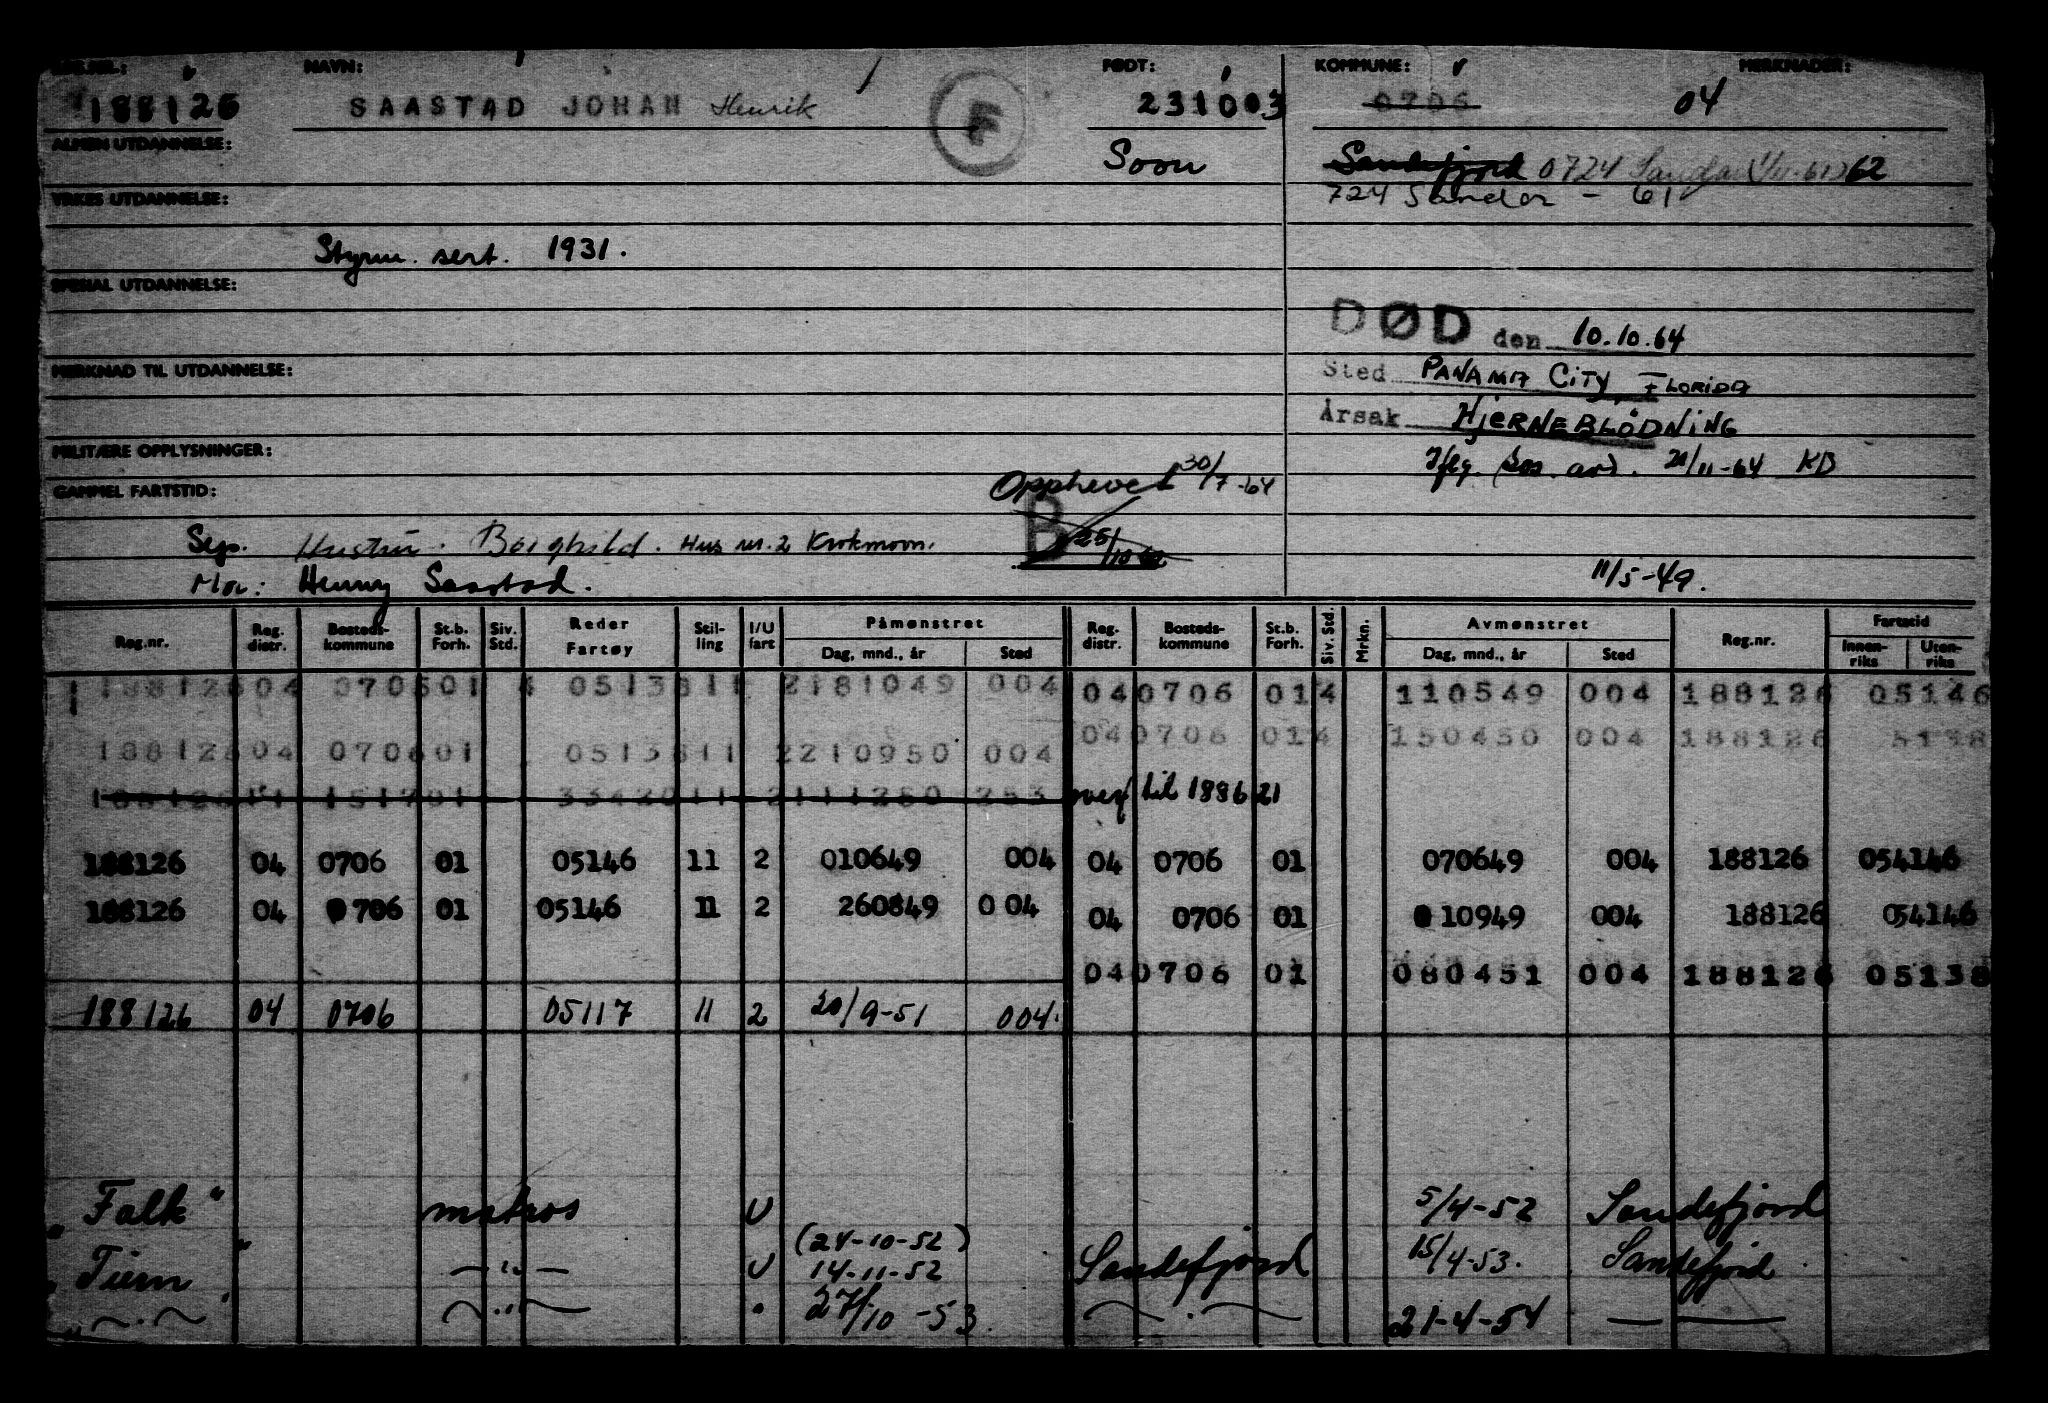 NAVN: FØDT: KOMMUNE: MERKNADER:
188126 SAASTAD JOHAN Henrik F 231003 0706 04
ALMEN UTDANNELSE: Soon Sandefjord 0724 Sandar 62
724 Sandar - 61
YRKES UTDANNELSE:
Styrm. sert. 1931.
SPESIAL UTDANNELSE:
DØD den 10.10.64
MERKNAD TIL UTDANNELSE: Sted PANAMA CITY, FLORIDA
Årsak HJERNEBLØDNING
MILITÆRE OPPLYSNINGER: 21/11-64 KD
GAMMEL FARTSTID: Opphevet 30/7-64
B 25/10
Hustru: Borghild. Hus nr. 2 Krokmovn.
Mor: Henny Saastad. 11/5-49.
Reg.nr. Reg. distr. Bosteds-kommune St.b. Forh. Siv. Std. Reder Fartøy Stil-ling I/U fart Påmønstret Dag, mnd., år Sted Reg. distr. Bosteds-kommune St.b. Forh. Siv. Std. Mrkn. Avmønstret Dag, mnd., år Sted Reg.nr. Fartstid Innen-riks Uten-riks
188126 04 070601 4 0513811 2181049 004 04 0706 014 110549 004 188126 05146
188126 04 070601 0513811 2210950 004 04 0706 014 150450 004 188126 5138
2111250 253 overf til 188621
188126 04 0706 01 05146 11 2 010649 004 04 0706 01 070649 004 188126 054146
188126 04 0706 01 05146 11 2 260849 004 04 0706 01 010949 004 188126 054146
04 0706 01 080451 004 188126 05138
188126 04 0706 05117 11 2 20/9-51 004.
"Falk" matros U 5/4-52 Sandefjord
(24-10-52)
"Tiern" — " — U 14-11-52 Sandefjord 15/4-53. Sandefjord
" — " — " — " 27/10-53. — " — 21-4-54 — " —